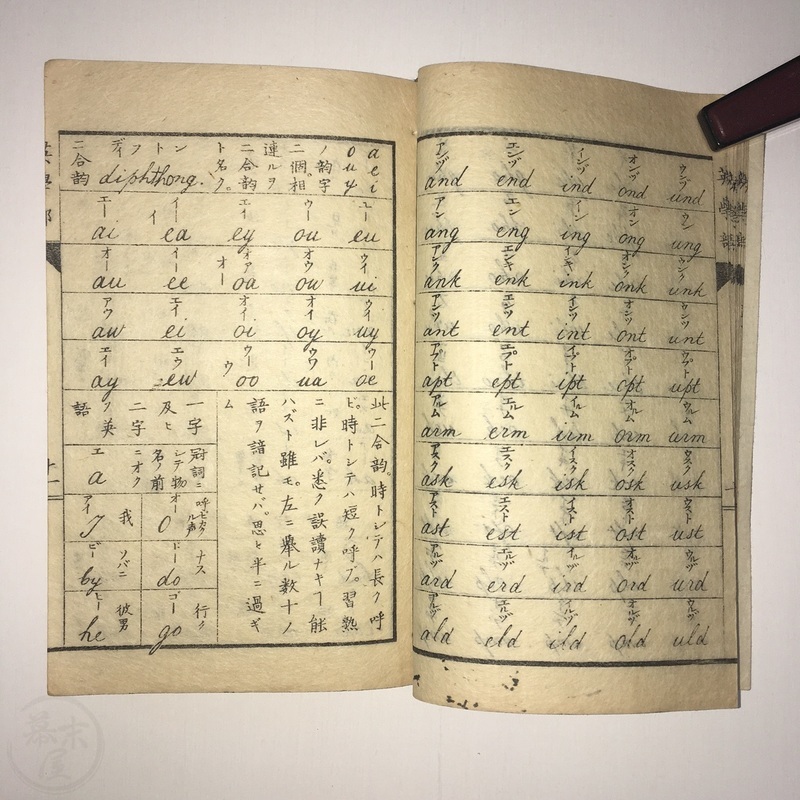 アンヅ エンヅ インヅ オンヅ ウンヅ
and end ind ond und
アン エン イン オン ウン
ang eng ing ong ung
アンク エンキ インキ オンク ウンク
ank enk ink onk unk
アンツ エンツ インツ オンツ ウンツ
ant ent int ont unt
アプト エプト イプト オプト ウプト
apt ept ipt opt upt
アルム エルム イルム オルム ウルム
arm erm irm orm urm
アスク エスク イスク オスク ウスク
ask esk isk osk usk
アスト エスト イスト オスト ウスト
ast est ist ost ust
アルヅ エルヅ イルヅ オルヅ ウルヅ
ard erd ird ord urd
アルヅ エルヅ イルヅ オルヅ ウルヅ
ald eld ild old uld
a e i
o u y
ノ韵字
二個相
連ルヲ
二合韵
ト名ク。
ディフトン
diphthong.
二合韵
エー イー イ エイ ウー ユー
ai ea ey ou eu
オー イー オ オア オウ ウイ
au ee oa ow ui
アウ エイ オイ オイ ウイ
aw ei oi oy uy
エイ エウ ウ ウー ウワ ウー
ay ew oo ua oe
此二合韵。時トシテハ長ク呼
ビ。時トシテハ短ク呼ブ。習熟
ニ非レバ。悉ク誤讀ナキヿ能
ハズト雖モ。左ニ擧ル数十ノ
語ヲ諳記セバ。思ヒ半ニ過ギ
ム
一字
及ヒ
二字
ノ英
語
冠詞ニ
シテ物
名ノ前
ニオク
エ
a
オー
O
我
アイ
I
ナス
ドー
do
ソバニ
ビー
by
行ク
ゴー
go
彼男
ヒー
he
幕末屋